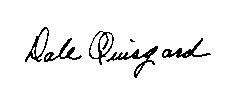 Dale Quisgard